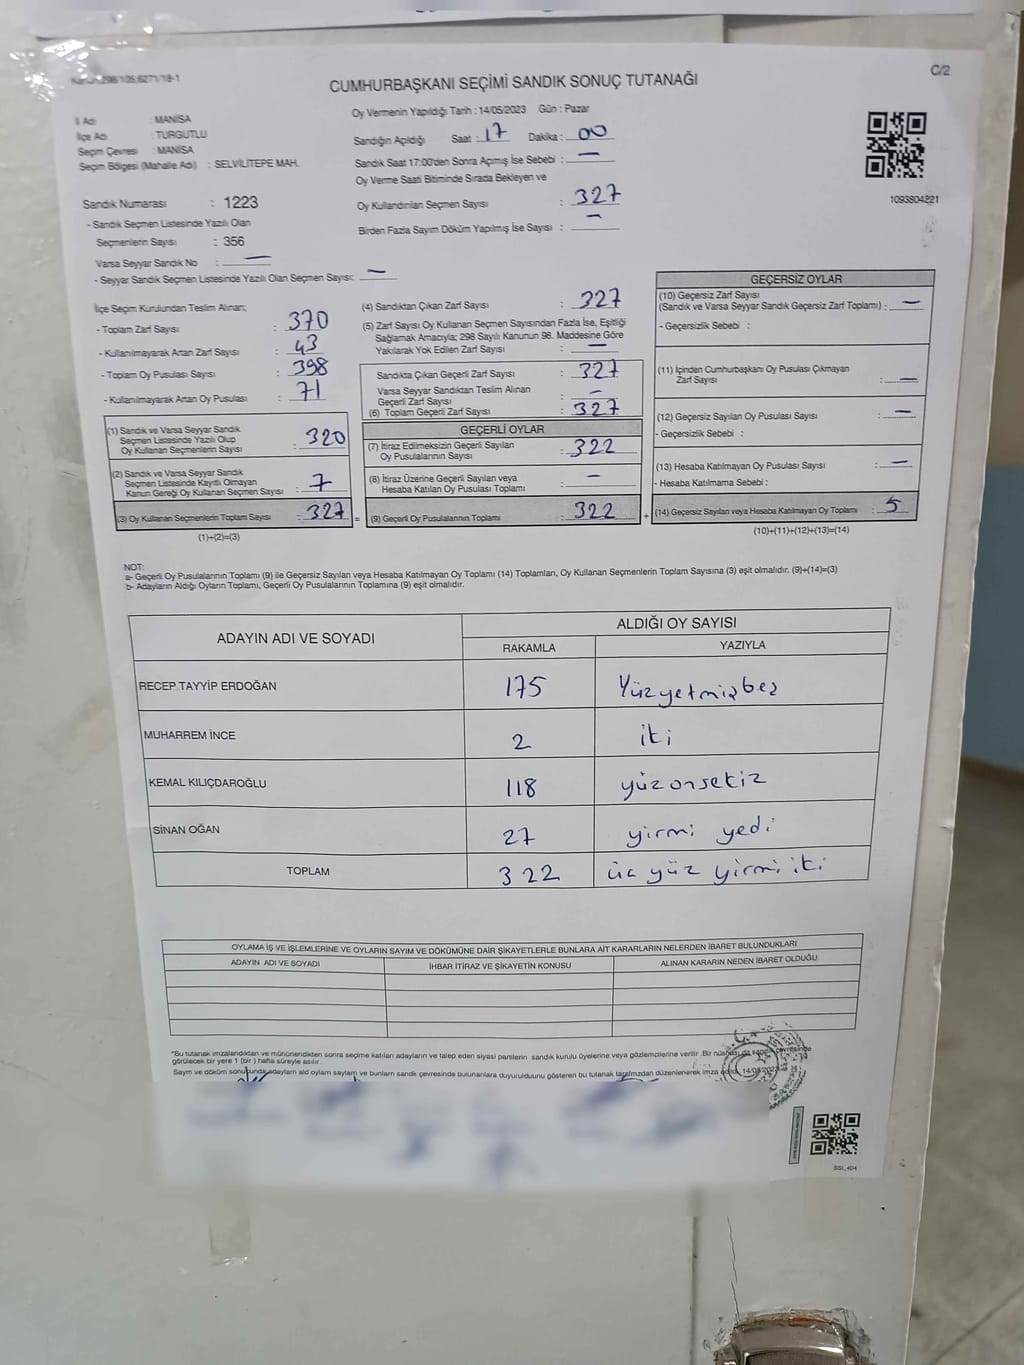 CUMHURBAŞKANI SEÇİMİ SANDIK SONUÇ TUTANAĞI
C/2
İl Adı : MANİSA
İlçe Adı : TURGUTLU
Seçim Çevresi : MANİSA
Seçim Bölgesi (Mahalle Adı) : SELVİLİTEPE MAH.
Sandık Numarası : 1223
- Sandık Seçmen Listesinde Yazılı Olan
Seçmenlerin Sayısı : 356
Varsa Seyyar Sandık No : —
- Seyyar Sandık Seçmen Listesinde Yazılı Olan Seçmen Sayısı: —
Oy Vermenin Yapıldığı Tarih : 14/05/2023 Gün : Pazar
Sandığın Açıldığı Saat : 17 Dakika : 00
Sandık Saat 17:00'den Sonra Açılmış İse Sebebi : —
Oy Verme Saati Bitiminde Sırada Bekleyen ve
Oy Kullandırılan Seçmen Sayısı : 327
Birden Fazla Sayım Döküm Yapılmış İse Sayısı : —
1093804221
İlçe Seçim Kurulundan Teslim Alınan;
- Toplam Zarf Sayısı : 370
- Kullanılmayarak Artan Zarf Sayısı : 43
- Toplam Oy Pusulası Sayısı : 398
- Kullanılmayarak Artan Oy Pusulası : 71
(1) Sandık ve Varsa Seyyar Sandık
Seçmen Listesinde Yazılı Olup
Oy Kullanan Seçmenlerin Sayısı : 320
(2) Sandık ve Varsa Seyyar Sandık
Seçmen Listesinde Kayıtlı Olmayan
Kanun Gereği Oy Kullanan Seçmen Sayısı : 7
(3) Oy Kullanan Seçmenlerin Toplam Sayısı : 327 =
(1)+(2)=(3)
(4) Sandıktan Çıkan Zarf Sayısı : 327
(5) Zarf Sayısı Oy Kullanan Seçmen Sayısından Fazla İse, Eşitliği
Sağlamak Amacıyla; 298 Sayılı Kanunun 98. Maddesine Göre
Yakılarak Yok Edilen Zarf Sayısı : —
Sandıkta Çıkan Geçerli Zarf Sayısı : 327
Varsa Seyyar Sandıktan Teslim Alınan
Geçerli Zarf Sayısı : —
(6) Toplam Geçerli Zarf Sayısı : 327
GEÇERLİ OYLAR
(7) İtiraz Edilmeksizin Geçerli Sayılan
Oy Pusulalarının Sayısı : 322
(8) İtiraz Üzerine Geçerli Sayılan veya
Hesaba Katılan Oy Pusulası Toplamı : —
(9) Geçerli Oy Pusulalarının Toplamı : 322 +
GEÇERSİZ OYLAR
(10) Geçersiz Zarf Sayısı
(Sandık ve Varsa Seyyar Sandık Geçersiz Zarf Toplamı) : —
- Geçersizlik Sebebi :
(11) İçinden Cumhurbaşkanı Oy Pusulası Çıkmayan
Zarf Sayısı : —
(12) Geçersiz Sayılan Oy Pusulası Sayısı : —
- Geçersizlik Sebebi :
(13) Hesaba Katılmayan Oy Pusulası Sayısı : —
- Hesaba Katılmama Sebebi :
(14) Geçersiz Sayılan veya Hesaba Katılmayan Oy Toplamı : 5
(10)+(11)+(12)+(13)=(14)
NOT:
a- Geçerli Oy Pusulalarının Toplamı (9) ile Geçersiz Sayılan veya Hesaba Katılmayan Oy Toplamı (14) Toplamları, Oy Kullanan Seçmenlerin Toplam Sayısına (3) eşit olmalıdır. (9)+(14)=(3)
b- Adayların Aldığı Oyların Toplamı, Geçerli Oy Pusulalarının Toplamına (9) eşit olmalıdır.
ADAYIN ADI VE SOYADI ALDIĞI OY SAYISI
RAKAMLA YAZIYLA
RECEP TAYYİP ERDOĞAN 175 Yüzyetmişbeş
MUHARREM İNCE 2 iki
KEMAL KILIÇDAROĞLU 118 yüzonsekiz
SİNAN OĞAN 27 yirmi yedi
TOPLAM 322 üç yüz yirmi iki
OYLAMA İŞ VE İŞLEMLERİNE VE OYLARIN SAYIM VE DÖKÜMÜNE DAİR ŞİKAYETLERLE BUNLARA AİT KARARLARIN NELERDEN İBARET BULUNDUKLARI
ADAYIN ADI VE SOYADI İHBAR İTİRAZ VE ŞİKAYETİN KONUSU ALINAN KARARIN NEDEN İBARET OLDUĞU
*Bu tutanak imzalandıktan ve mühürlendikten sonra seçime katılan adayların ve talep eden siyasi partilerin sandık kurulu üyelerine veya gözlemcilerine verilir. Bir çevresinde
görülecek bir yere 1 (bir) hafta süreyle asılır.
Sayım ve döküm sonunda adayların aldığı oyların sayılarını ve bunların sandık çevresinde bulunanlara duyurulduğunu gösteren bu tutanak tarafımızdan düzenlenerek imza
SSI_404